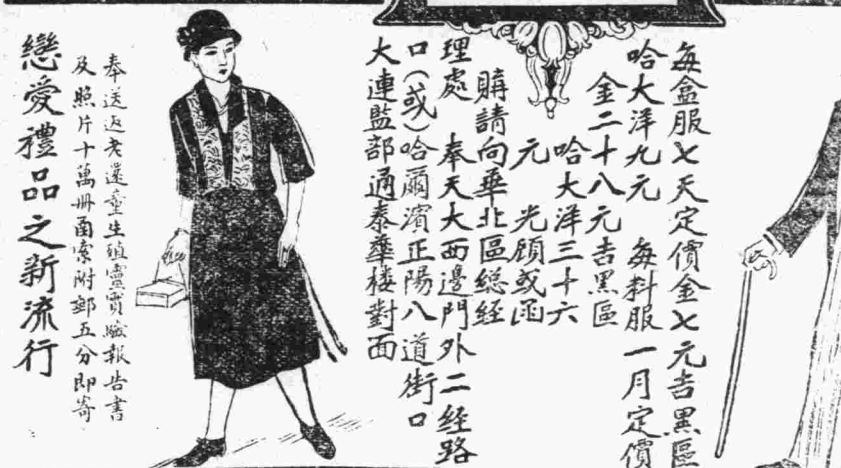 每盒服七天定價金七元吉黑區
哈大洋九元　每料服一月定價
金二十八元吉黑區
哈大洋三十六
元　光顧或函
購請向華北區総経
理處　奉天大西邊門外二経路
口(或)哈爾濱正陽八道街口
大連監部通泰華楼對面
奉送返老還童生殖靈實驗報告書
及照片十萬册函索附郵五分即寄
戀愛禮品之新流行